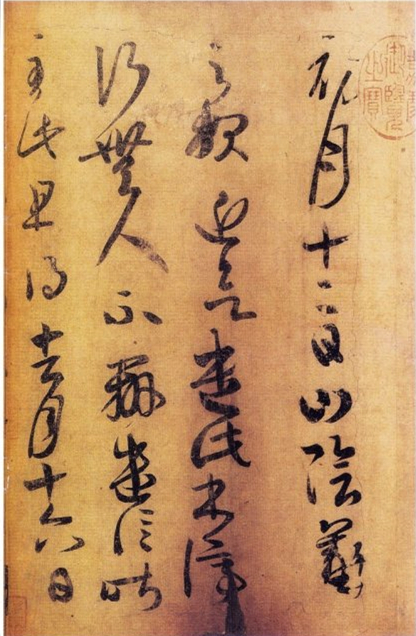 初月十二日山陰羲
之報近欲遣此書停
行無人不辦遣信昨
至此且得去月十六日
御覽
之寶